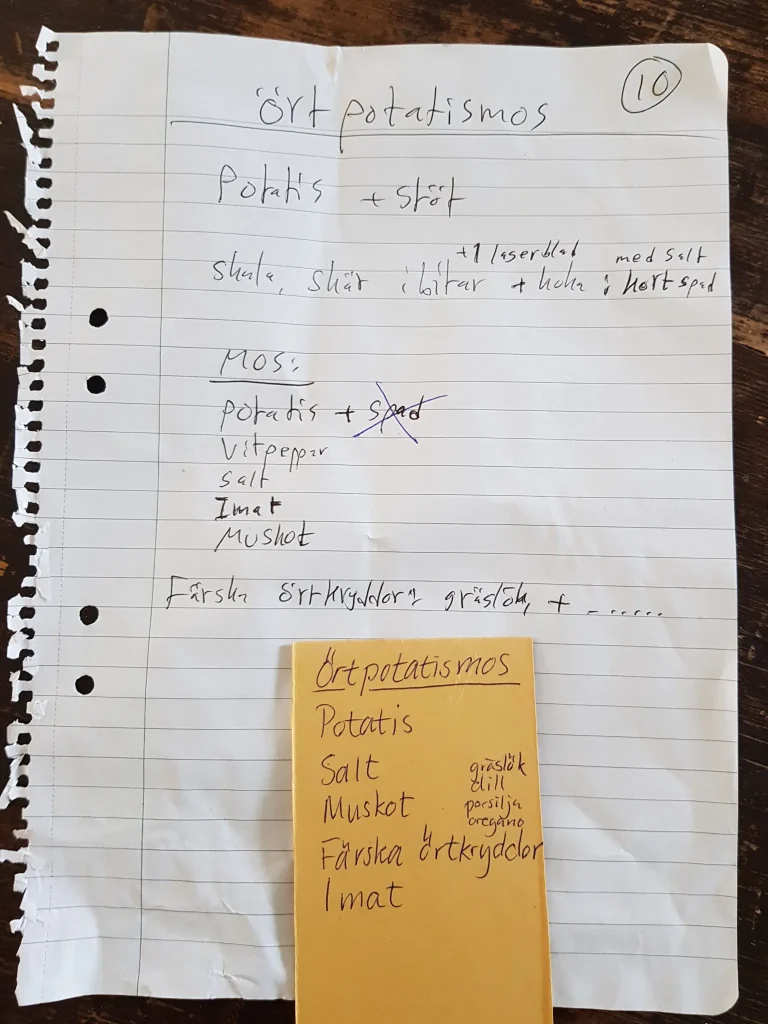 Örtpotatismos
10
Potatis + stöt
+1 lagerblad med salt
skala, skär i bitar + koka i kort spad
Mos:
potatis + spad
Vitpeppar
salt
Imat
Muskot
Färska örtkryddor: gräslök, + - .....
Örtpotatismos
Potatis
Salt
gräslök
dill
Muskot
persilja
oregano
Färska örtkryddor
Imat